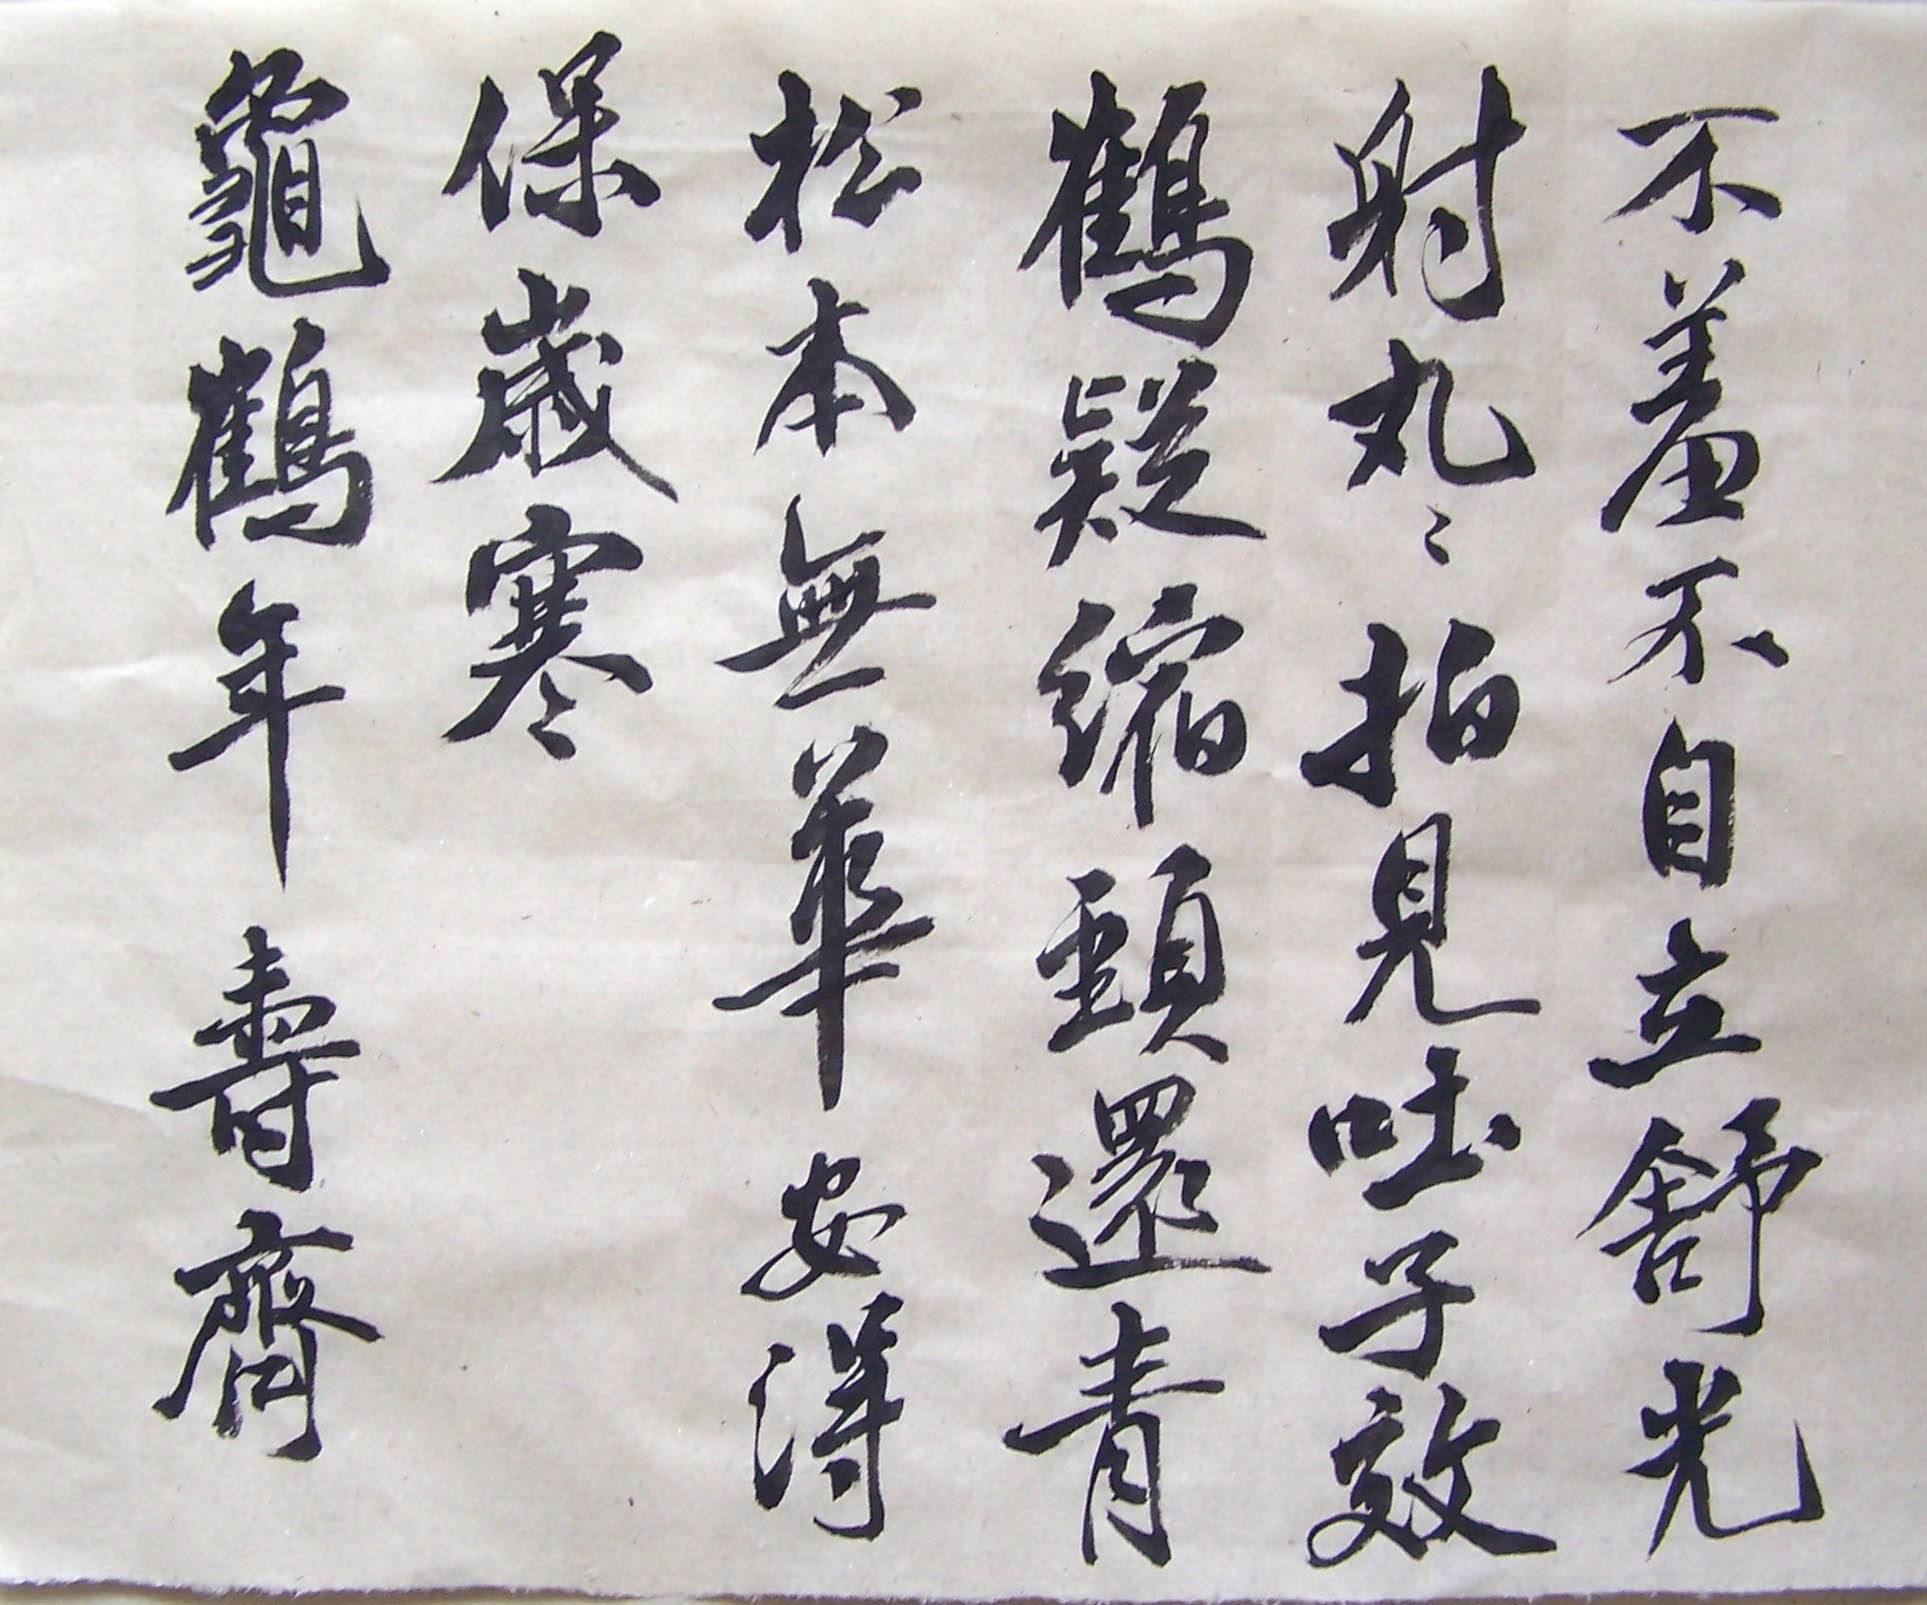 不羞不自立舒光
射丸丸拍見吐子效
鶴疑縮頸還青
松本無華安得
保歲寒
龜鶴年壽齊